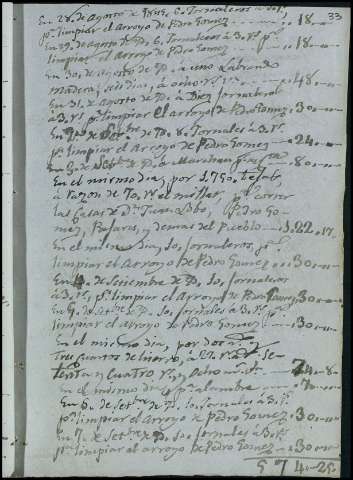 33
En 28. de Agosto de 1849. 6. Jornaleros a 3 r.s
p.a limpiar el Arroyo de Pedro Gomez 18
En 29. de Agosto de D. 6. Jornaleros a 3. r.s p.a
limpiar el Arroyo de Pedro Gomez 18
En 30. de Agosto de D. a uno Labrando
madera, seis dias, a ocho r.s 48
En 31. de Agosto de D. a Diez Jornales
a 3. r.s p.a limpiar el arroyo de Pedro Gomez 30
En de D. 8. Jornales a 3. r.s
p.a limpiar el Arroyo de Pedro Gomez 24
En de Set.bre de D. 80
En el mismo dia, por 1.750. tejas
a razon de 70. r.s el millar, p.a correr
las Casas de D.n Juan Lobo, Pedro Go-
mez, Bajares, y demas del Pueblo 122. 17
En el mismo dia, 10. Jornaleros, p.a
limpiar el Arroyo de Pedro Gomez 30
En 4. de Setiembre de D. 10. jornaleros
a 3. r.s, p.a limpiar el Arroyo de Pedro Gomez 30
En 5. de Set.bre de D. 10. jornales a 3. r.s p.a
limpiar el arroyo de Pedro Gomez 30
En el mismo dia, por dos y
tres cuartos de a se-
tenta y cuatro r.s y ocho m.s 74-8
En el mismo dia, p.r alambre
En 6. de Set.bre de D. 10. Jornales a 3. r.s
p.a limpiar el Arroyo de Pedro Gomez 30
En 7. de Set.bre de D. 10. jornales a 3. r.s
p.a limpiar el arroyo de Pedro Gomez 30
574-25